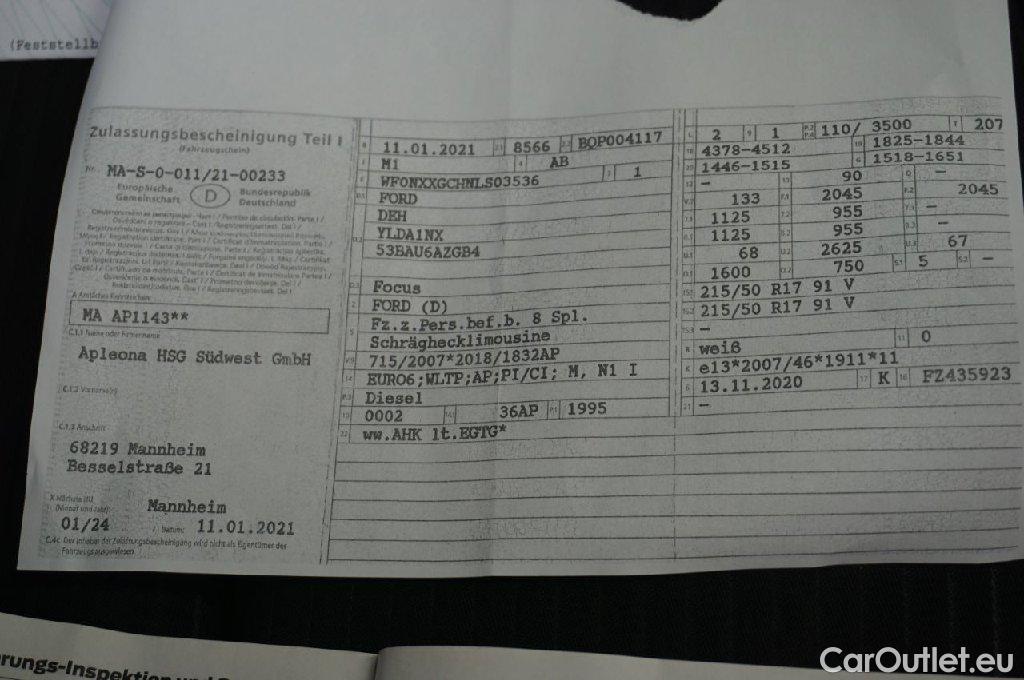 (Feststellb
Zulassungsbescheinigung Teil I
(Fahrzeugschein)
Nr. MA-S-0-011/21-00233
Europäische Gemeinschaft D Bundesrepublik Deutschland
A Amtliches Kennzeichen
MA AP1143**
C.1.1 Name oder Firmenname
Apleona HSG Südwest GmbH
C.1.2 Vorname(n)
C.1.3 Anschrift
68219 Mannheim
Besselstraße 21
Mannheim
01/24 Datum: 11.01.2021
C.4c Der Inhaber der Zulassungsbescheinigung wird nicht als Eigentümer des
Fahrzeugs ausgewiesen.
B 11.01.2021 2.1 8566 2.2 BOP004117
J M1 4 AB
E WF0NXXGCHNLS03536 3 1
D.1 FORD
DEH
D.2 YLDA1NX
53BAU6AZGB4
D.3 Focus
2 FORD (D)
5 Fz.z.Pers.bef.b. 8 Spl.
Schräghecklimousine
V.9 715/2007*2018/1832AP
14 EURO6;WLTP;AP;PI/CI; M, N1 I
P.3 Diesel
10 0002 14.1 36AP P.1 1995
22 ww.AHK lt.EGTG*
L 2 9 1 P.2 P.4 110/ 3500 T 207
18 4378-4512 19 1825-1844
20 1446-1515 G 1518-1651
12 - 13 90 Q -
V.7 133 F.1 2045 F.2 2045
7.1 1125 7.2 955 7.3 -
8.1 1125 8.2 955 8.3 -
U.1 68 U.2 2625 U.3 67
O.1 1600 O.2 750 S.1 5 S.2 -
15.1 215/50 R17 91 V
15.2 215/50 R17 91 V
15.3 -
R weiß 11 0
K e13*2007/46*1911*11
6 13.11.2020 17 K 16 FZ435923
21 -
rungs-Inspektion und
CarOutlet.eu